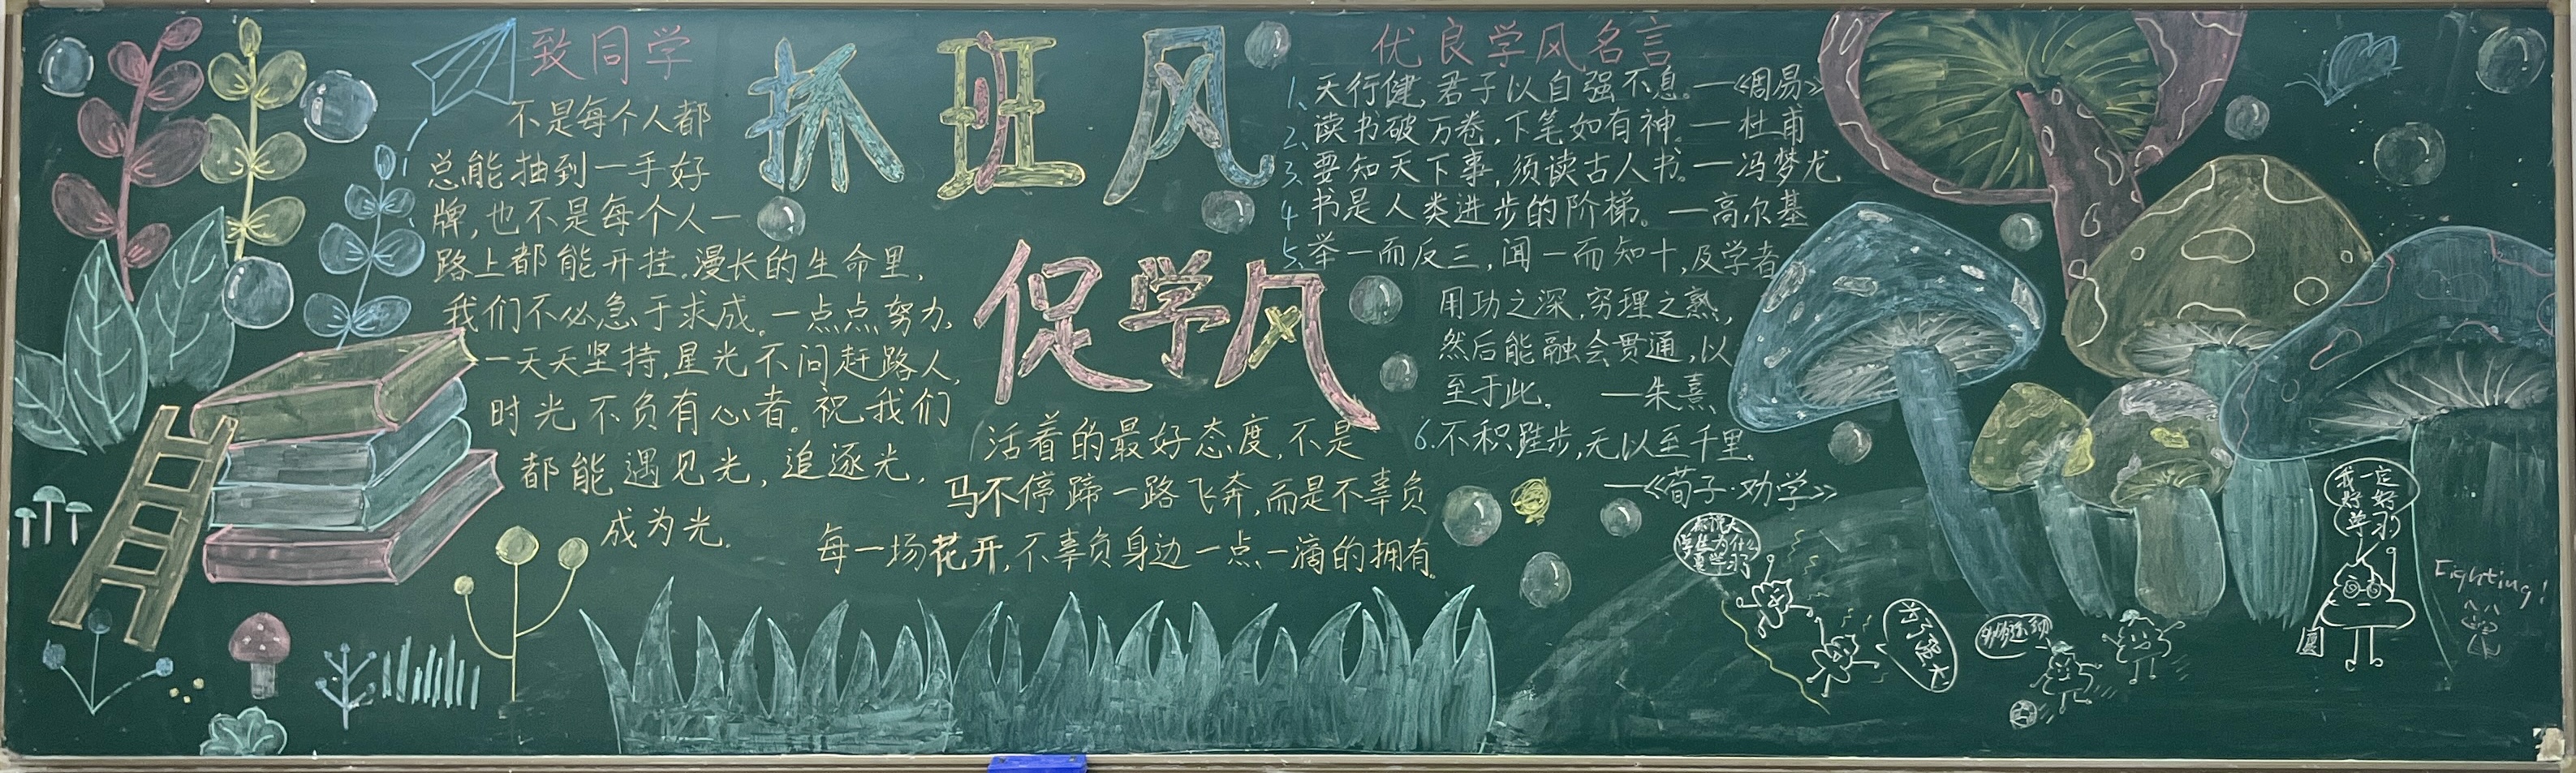 致同学
不是每个人都
总能抽到一手好
牌，也不是每个人一
路上都能开挂。漫长的生命里，
我们不必急于求成。一点点努力，
一天天坚持，星光不问赶路人，
时光不负有心者。祝我们
都能遇见光，追逐光，
成为光。
抓班风
促学风
活着的最好态度，不是
马不停蹄一路飞奔，而是不辜负
每一场花开，不辜负身边一点一滴的拥有。
优良学风名言
1、天行健，君子以自强不息。—《周易》
2、读书破万卷，下笔如有神。—杜甫
3、要知天下事，须读古人书。—冯梦龙
4 书是人类进步的阶梯。—高尔基
5、举一而反三，闻一而知十，及学者
用功之深，穷理之熟，
然后能融会贯通，以
至于此。—朱熹
6.不积跬步，无以至千里。
—《荀子·劝学》
学生为什么
要学习
我一定
好好
学习
Fighting!